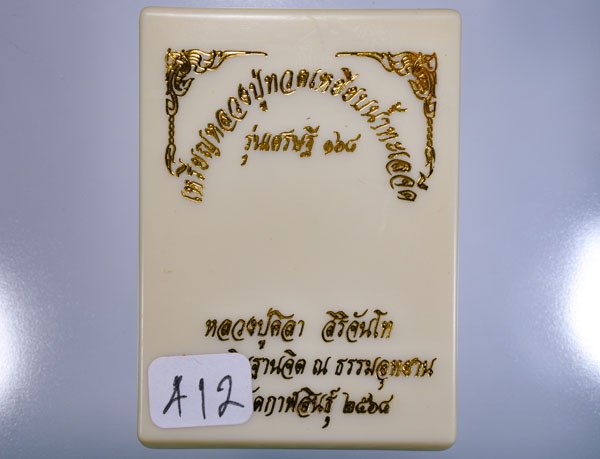 เหรียญหลวงปู่ทวดเหยียบน้ำทะเลจืด
รุ่นเศรษฐี ๑๖๘
หลวงปู่ศิลา สิริจันโท
ฐานจิต ณ ธรรมอุทยาน
กาฬสินธุ์ ๒๕๖๘
A12